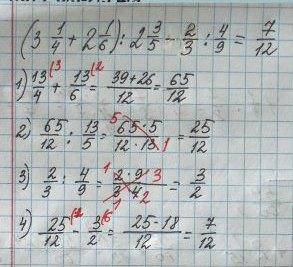 (3 1/4 + 2 1/6) : 2 3/5 - 2/3 : 4/9 = 7/12
1) 13/4 (3 + 13/6 (2 = 39+26/12 = 65/12
2) 65/12 : 13/5 = 5 65·5/12·13 1 = 25/12
3) 2/3 : 4/9 = 1 2·9 3/1 3·4 2 = 3/2
4) 25/12 (1 - 3/2 (6 = 25-18/12 = 7/12